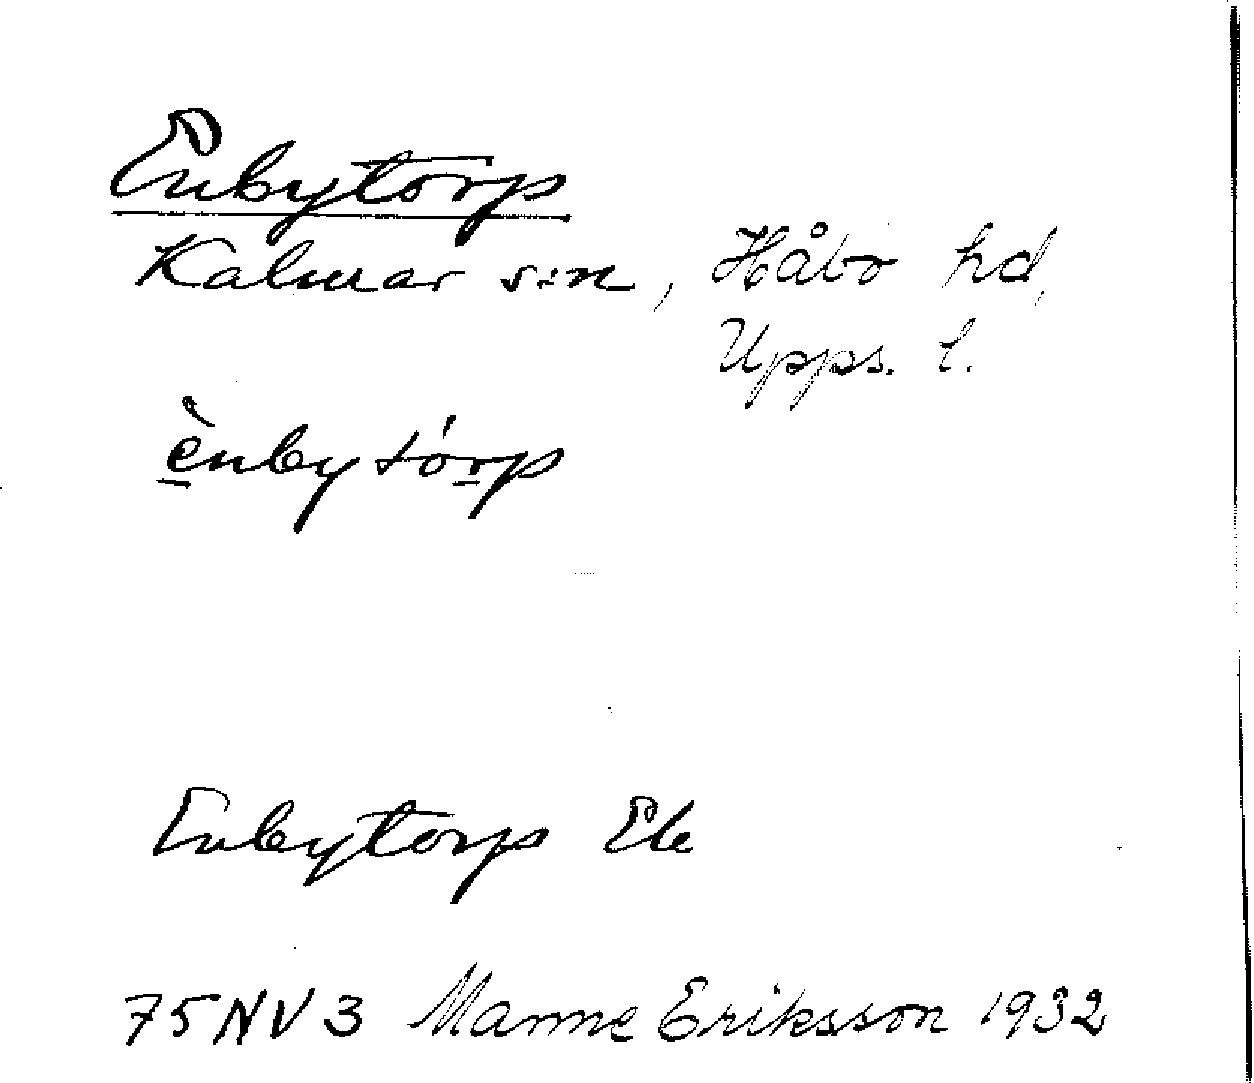 Enbytorp
Kalmar s:n, Håbo hd,
Upps. l.
ènbytórp
Enbytorp Ek
75NV3 Manne Eriksson 1932